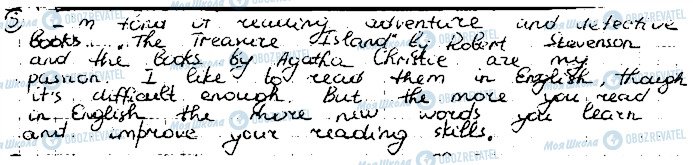 5 I'm fond of reading adventure and detective
books. "The Treasure Island" by Robert Stevenson
and the books by Agatha Christie are my
passion. I like to read them in English, though
it's difficult enough. But the more you read
in English the more new words you learn
and improve your reading skills.